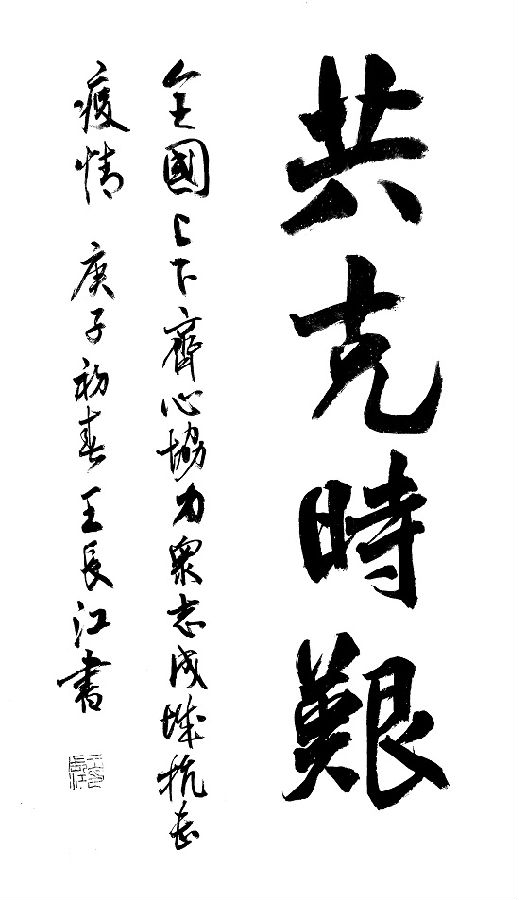 共克時艱
全國上下齊心協力眾志成城抗击
疫情 庚子初春王長江書